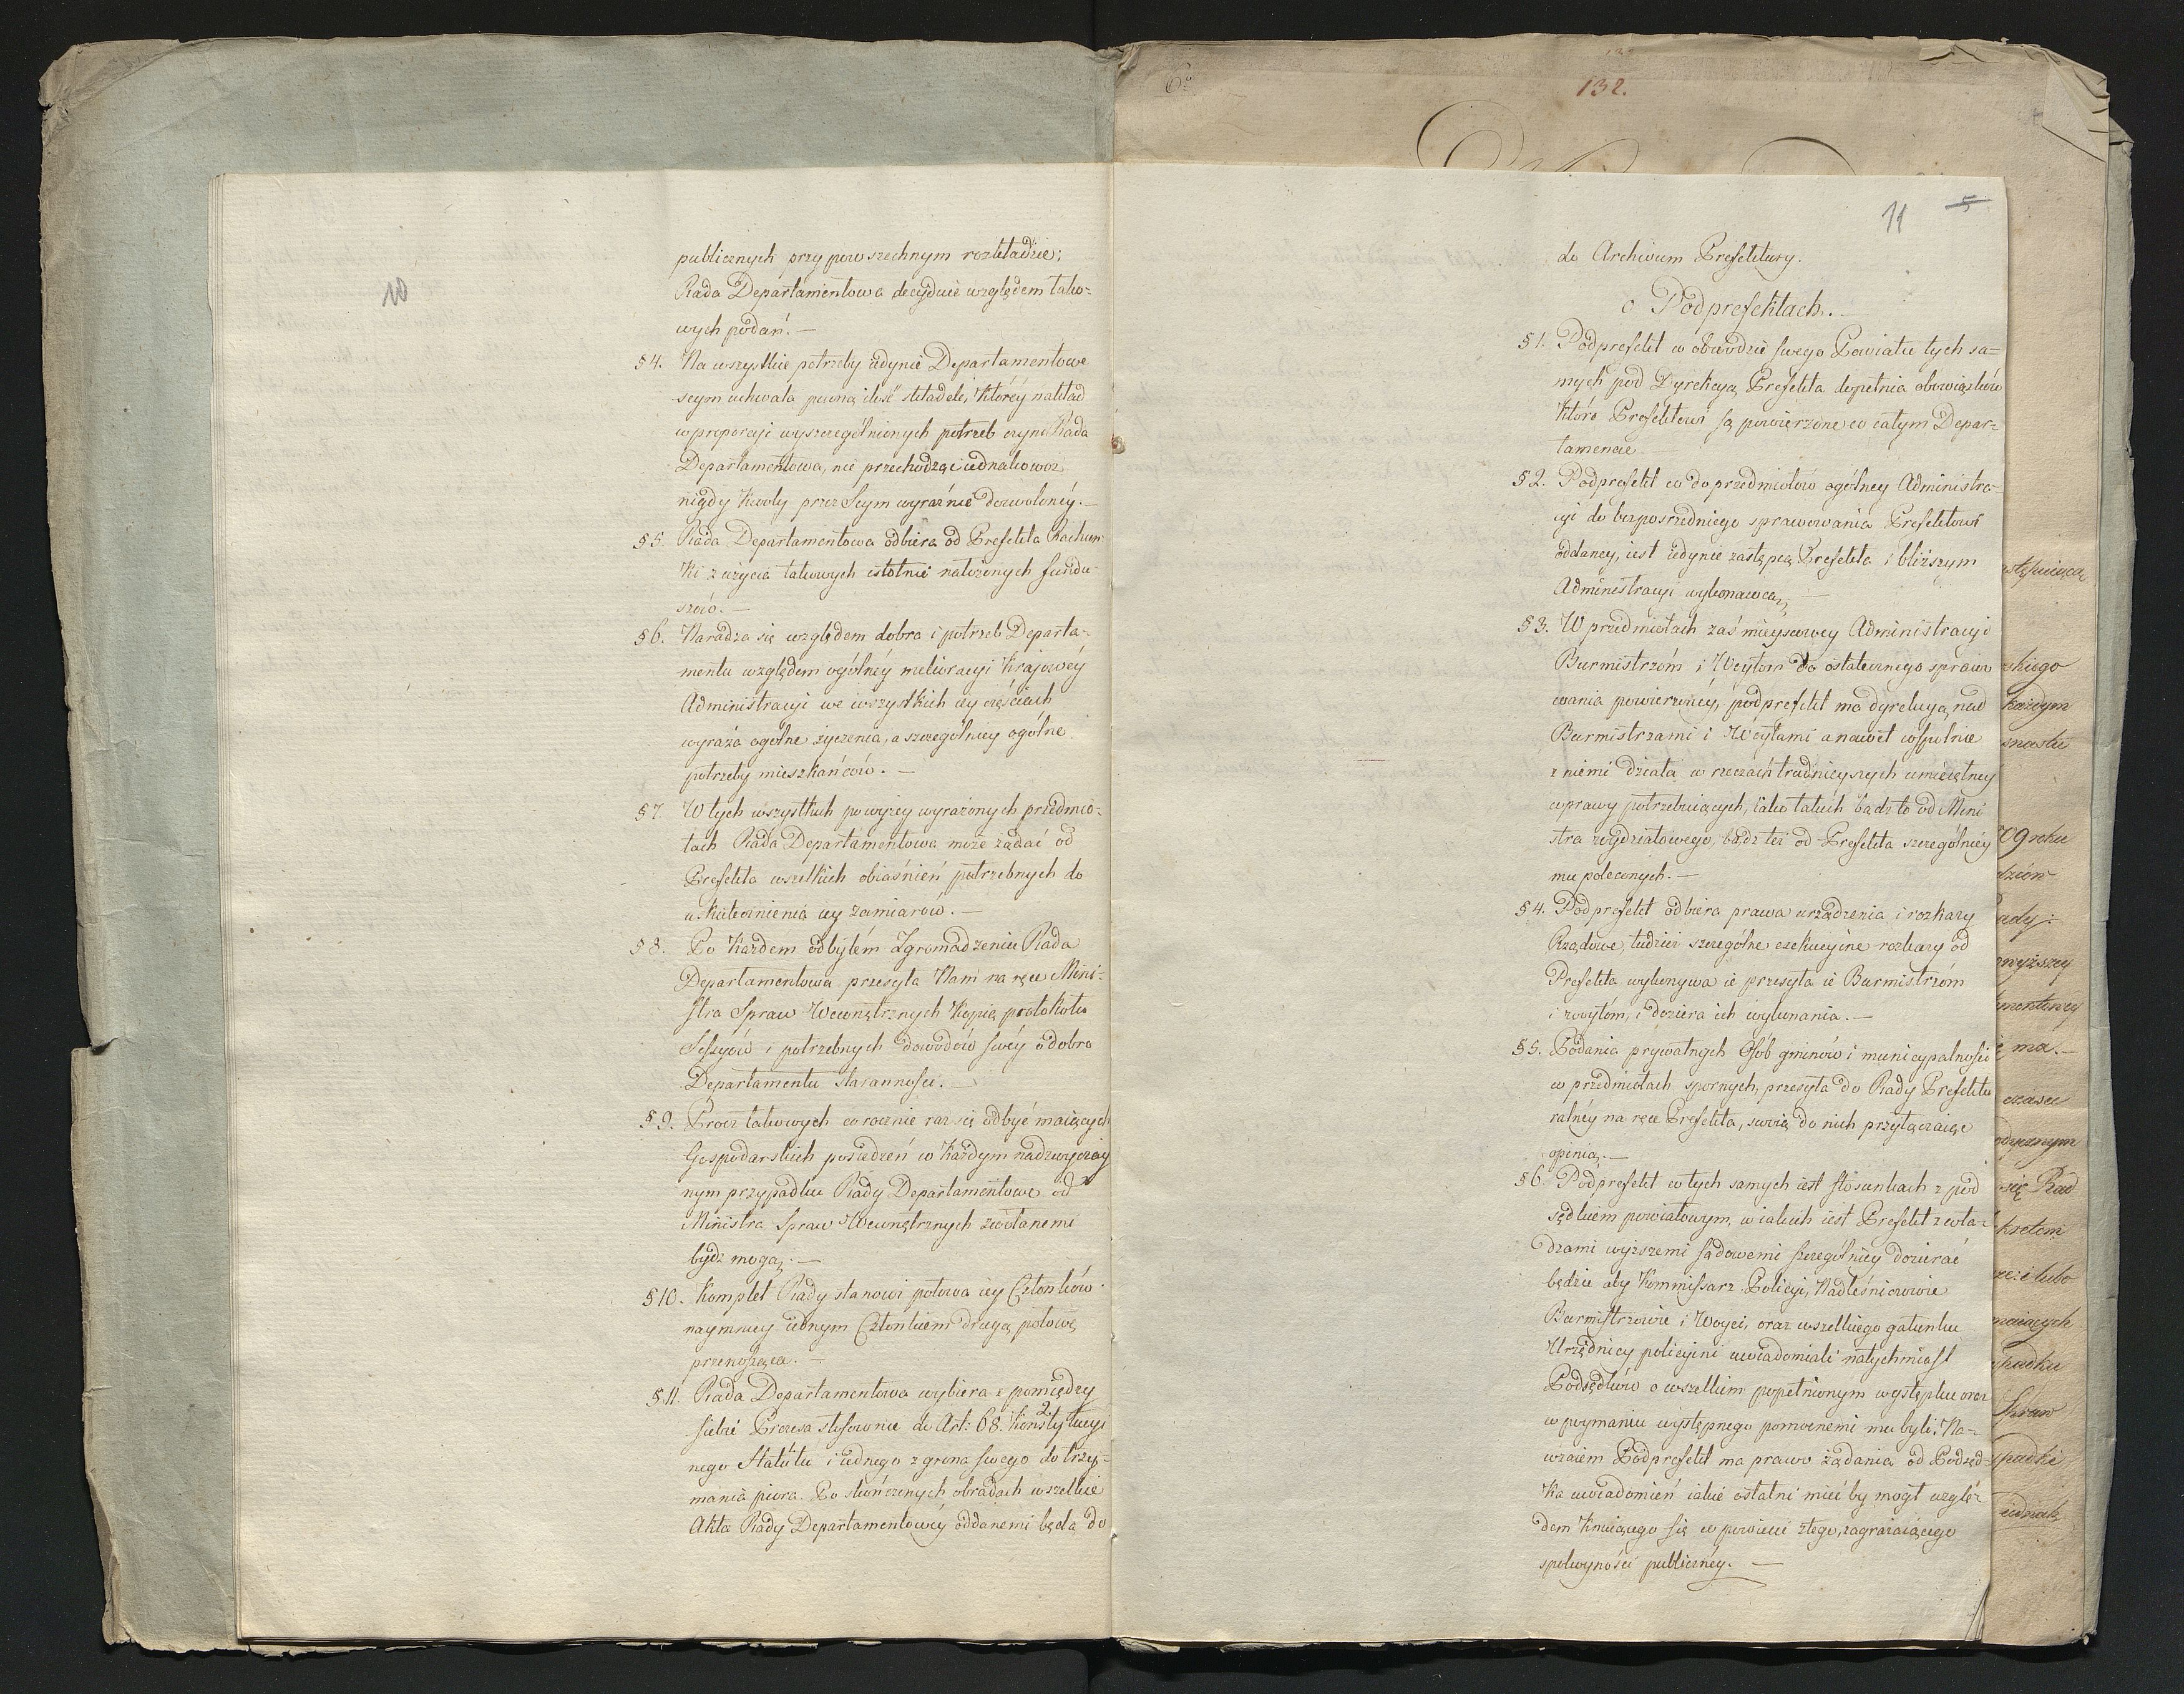 10
publicznych przy powszechnym rozkładzie;
Rada Departamentowa decyduie względem tako-
wych podań. —
§ 4. Na wszystkie potrzeby iedynie Departamentowe
seym uchwala pewną ilość składek, któréy nakład
w proporcyi wyszczególnionych potrzeb czyni Rada
Departamentowa, nie przechodząc iednakowoż
nigdy kwoty przez Seym wyraźnie dozwolonéy. —
§ 5. Rada Departamentowa odbiera od Prefekta Rachun-
ki z użycia takowych istotnie nałożonych fundu-
szów. —
§ 6. Naradza się względem dobra i potrzeb Departa-
mentu względem ogólnéy melioracyi Krajowéy
Administracyi we wszystkich iey częściach
wyraża ogólne życzenia, a szczególniey ogólne
potrzeby mieszkańców. —
§ 7. W tych wszystkich powyżey wyrażonych przedmio-
tach Rada Departamentowa może żądać od
Prefekta wszelkich obiaśnień potrzebnych do
uskutecznienia iey zamiarów. —
§ 8. Po każdem odbytém Zgromadzeniu Rada
Departamentowa przesyła Nam na ręce Mini-
stra Spraw Wewnętrznych Kopią protokołu
Sessyów i potrzebnych dowodów swéy o dobro
Departamentu staranności. —
§ 9. Procz takowych corocznie raz się odbyć maiących
Gospodarskich posiedzeń w każdym nadzwyczay
nym przypadku Rady Departamentowe od
Ministra Spraw Wewnętrznych zwołanemi
bydź mogą. —
§ 10. Komplet Rady stanowi połowa iey Członków
naymniey iednym Członkiem drugą połowę
przenosząca. —
§ 11. Rada Departamentowa wybiera z pomiędzy
siebie Prezesa stosownie do Art: 68. Konstytucyi
2
nego Statutu i iednego z grona swego do trzy-
mania piora. Po skończonych obradach wszelkie
Akta Rady Departamentowéy oddanemi będą do
6º
132.
11 5
do Archivum Prefektury.
o Podprefektach. —
§ 1. Podprefekt w obwodzie swego Powiatu tych sa-
mych pod Dyrekcyą Prefekta dopełnia obowiązków
które Prefektowi są powierzone w całym Depar-
tamencie —
§ 2. Podprefekt co do przedmiotów ogólney Administra-
cyi do bezpośredniego sprawowania Prefektowi
oddaney, iest iedynie zastępcą Prefekta i bliższym
Administracyi wykonawcą, —
§ 3. W przedmiotach zaś mieyscowey Administracyi
Burmistrzóm i Woytom do ostatecznego sprawo
wania powierzonéy, podprefekt ma dyrekcyą nad
Burmistrzami i Woytami a nawet wspulnie
z niemi działa w rzeczach trudnieyszych umieiętney
wprawy potrzebuiących, iako takich bądź to od Mini
stra wydziałowego, bądź też od Prefekta szczególniéy
mu poleconych. —
§ 4. Podprefekt odbiera prawa urządzenia i rozkazy
Rządowe, tudzież szczególne exekucyine rozkazy od
Prefekta wykonywa ie przesyła ie Burmistrzóm
i woytóm, i doziera ich wykonania. —
§ 5. Podania prywatnych Osób gminów i municypalności
w przedmiotach spornych, przesyła do Rady Prefektu
ralnéy na ręce Prefekta, swoią do nich przyłączaiąc
opinią. —
§ 6. Podprefekt w tych samych iest stosunkach z pod
sędkiem powiatowym, w iakich iest Prefekt z wła-
dzami wyższemi sądowemi szczególniey dozierać
będzie aby Kommissarz Policyi, Nadleśniczowie
Burmistrzowie i Woyci, oraz wszelkiego gatunku
Urzędnicy policyini uwiadomiali natychmiast
Podsędków o wszelkim popełnionym występku oraz
w poymaniu występnego pomocnemi mu byli; Na-
wzaiem Podprefekt ma prawo żądania od Podsęd-
ka uwiadomień iakie ostatni mieć by mogł wzglę-
dem knuiącego się w powiecie złego, zagrażaiącego
spokoyności publicznéy. —
skiego
każdym
09 roku
wyższey
mentowey
ma. —
czasu
się Rad
padku
Spraw
padki
iednak